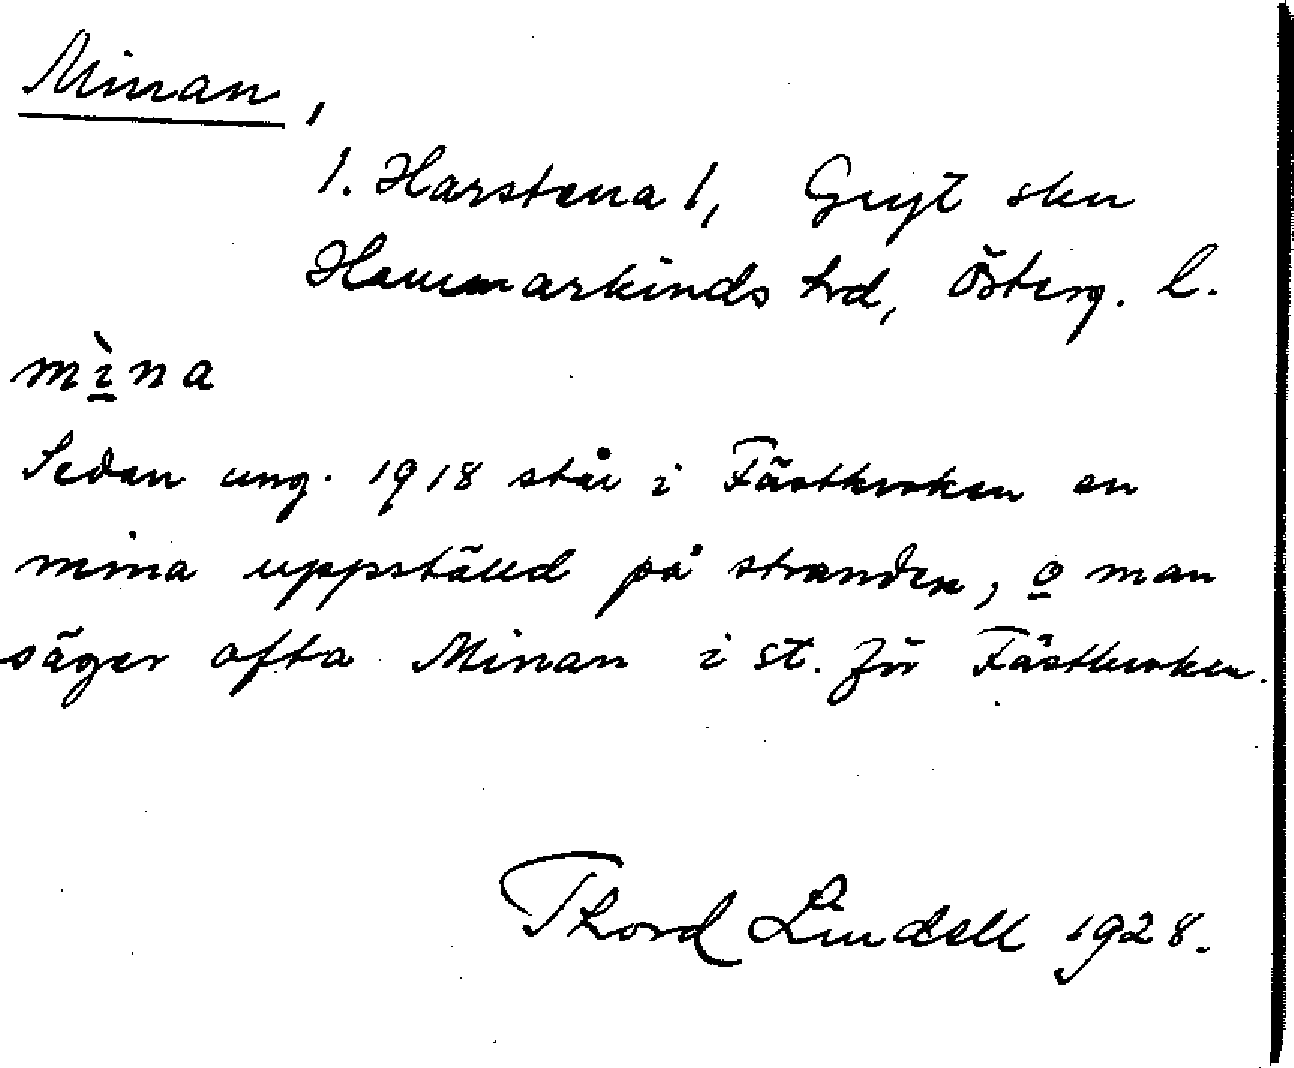 Minan,
1. Harstena 1, Gryt skn
Hammarkinds hd, Österg. l.
mìna
Sedan ung. 1918 står i Fästkroken en
mina uppställd på stranden, o man
säger ofta Minan i st. för Fästkroken.
Thord Lindell 1928.